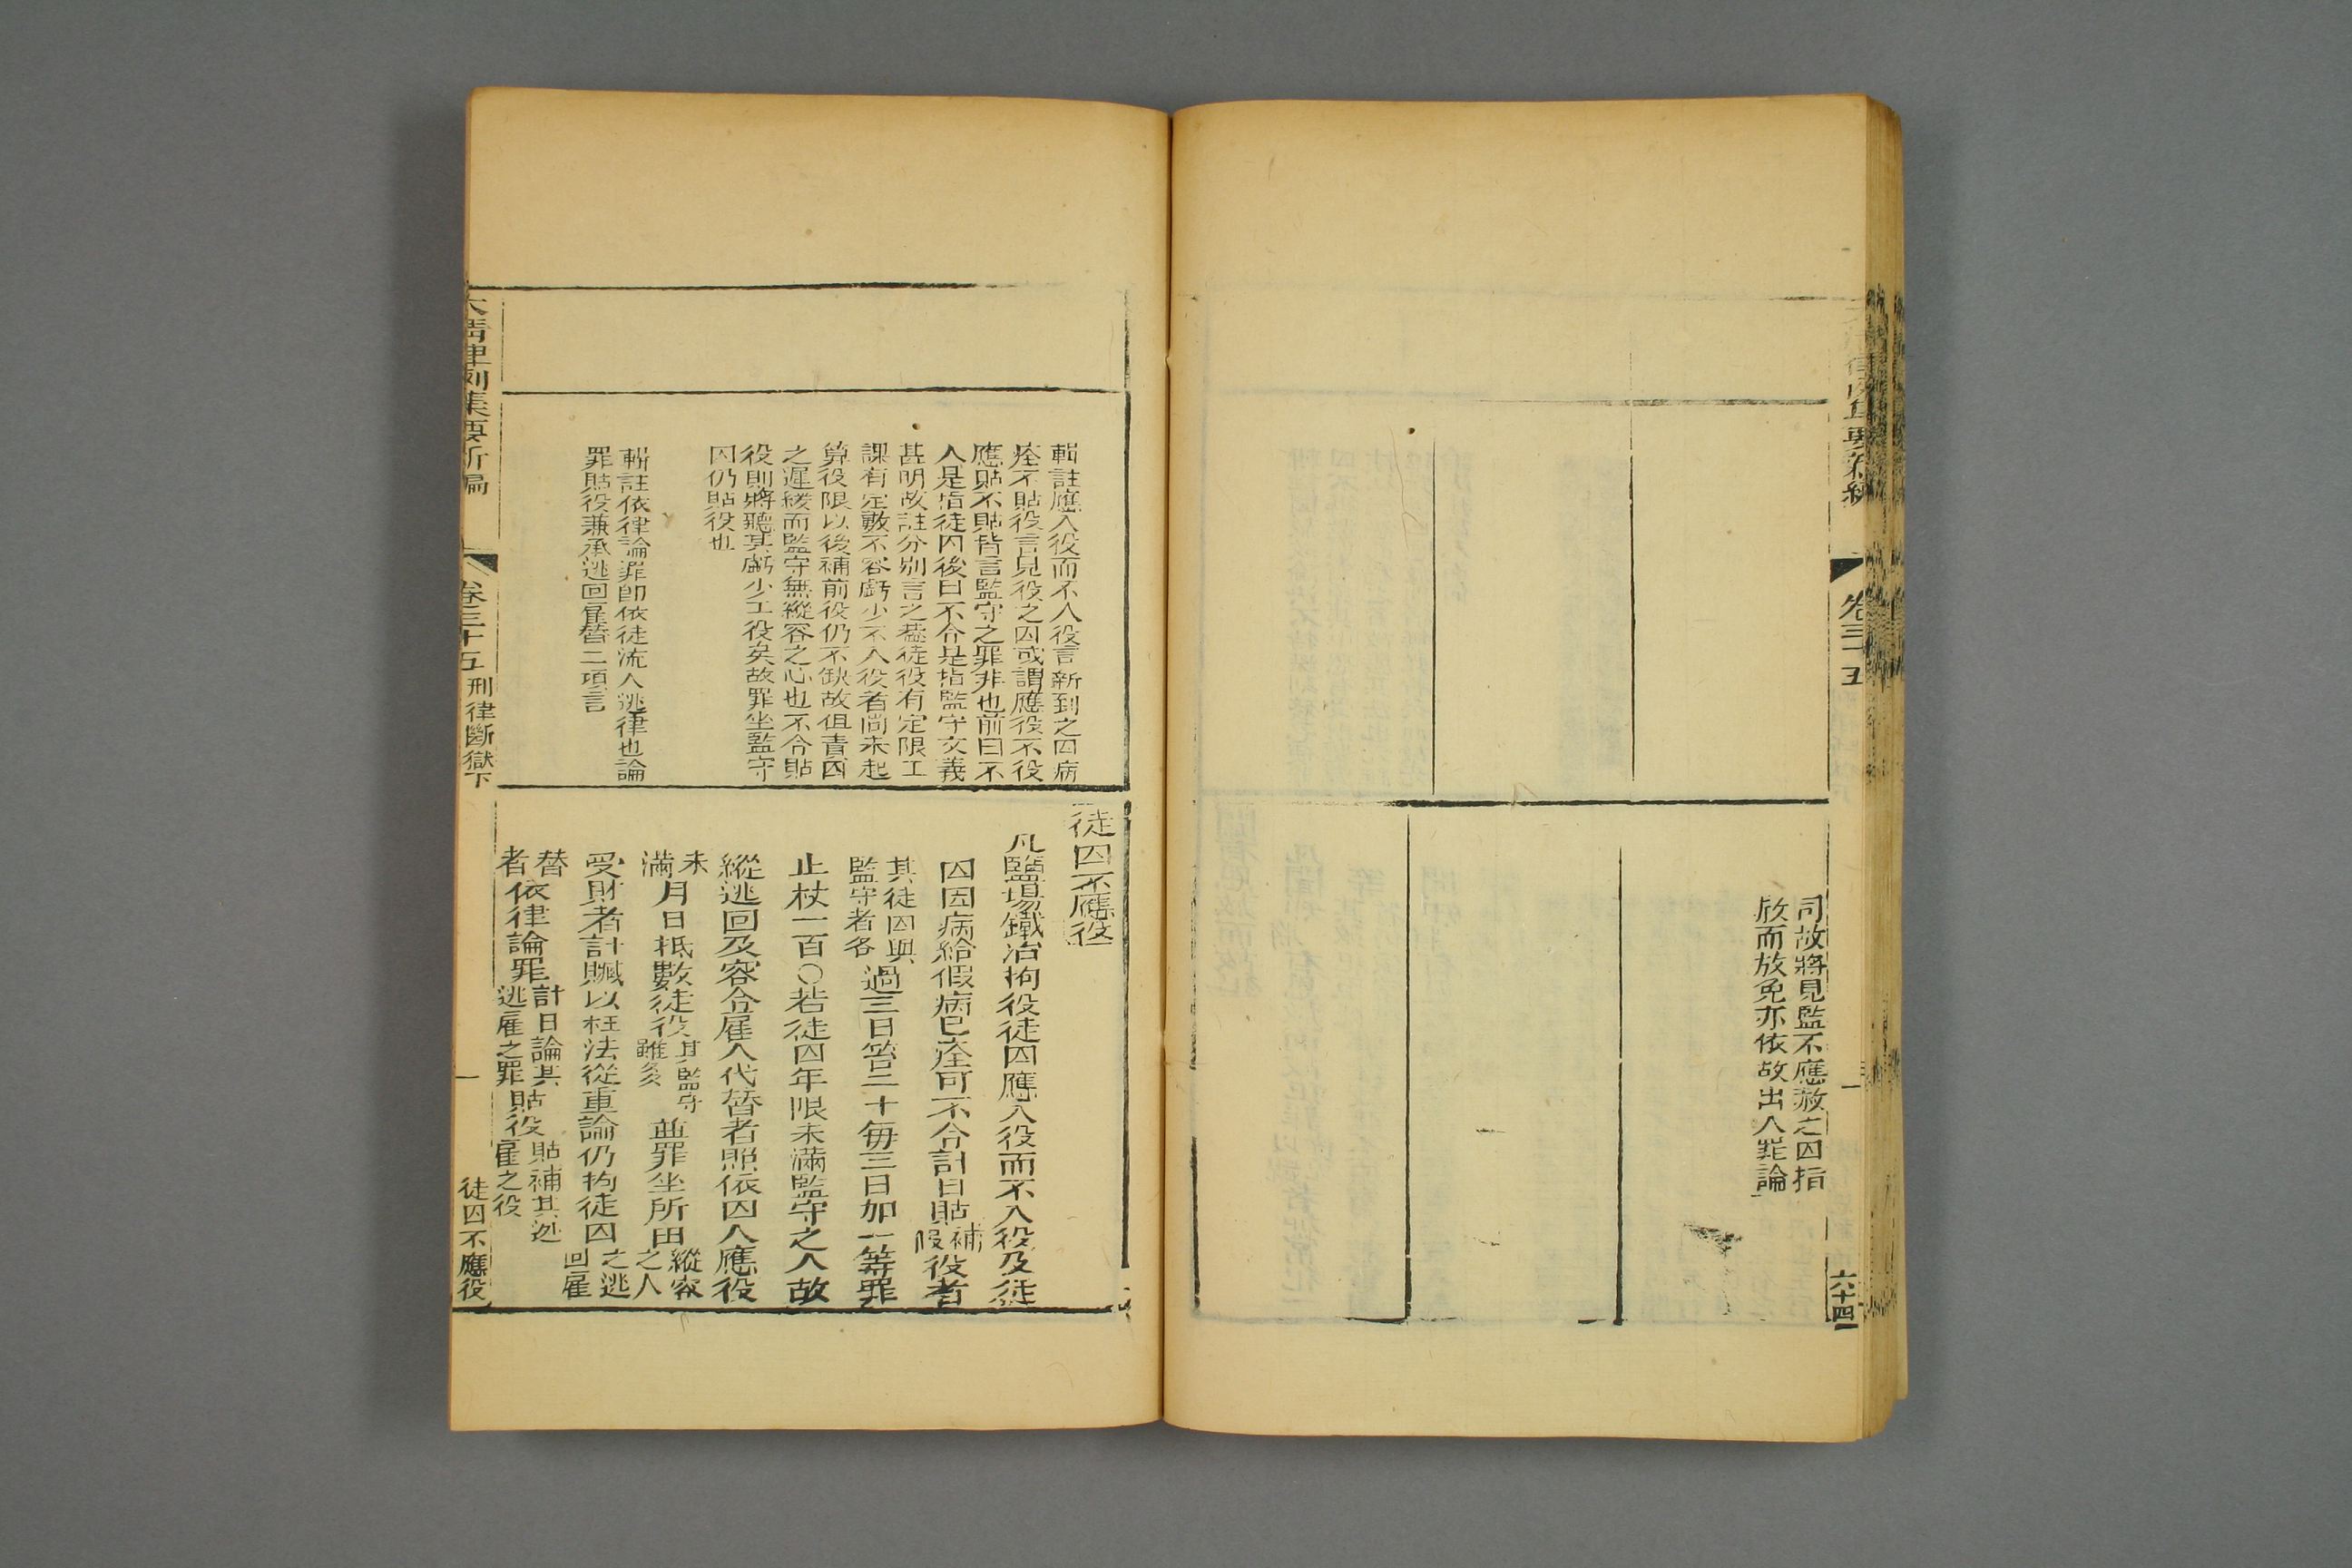 律例集要新編
卷三十五
六十四
司故將見監不應赦之囚指
赦而放免亦依故出入罪論
輯註應入役而不入役言新到之囚病
痊不貼役言見役之囚或謂應役不役
應貼不貼皆言監守之罪非也前曰不
人是指徒囚後曰不令是指監守文義
甚明故註分別言之蓋徒役有定限工
課有定數不容虧少不入役者尚未起
算役限以後補前役仍不缺故但責囚
之遲緩而監守無縱容之心也不令貼
役則將聽其虧少工役矣故罪坐監守
囚仍貼役也
輯註依律論罪即依徒流人逃律也論
罪貼役兼承逃回雇替二項言
徒囚不應役
凡鹽場鐵冶拘役徒囚應入役而不入役及徒
囚因病給假病已痊可不令計日貼補假役者
其徒囚與監守者各過三日笞二十每三日加一等罪
止杖一百〇若徒囚年限未滿監守之人故
縱逃回及容令雇人代替者照依囚人應役
未滿月日抵數徒役其監守雖多並罪坐所由縱容之人
受財者計贓以枉法從重論仍拘徒囚之逃回雇
替者依律論罪計日論其逃雇之罪貼役貼補其逃雇之役
大清律例集要新編
卷三十五
刑律斷獄下
一
徒囚不應役